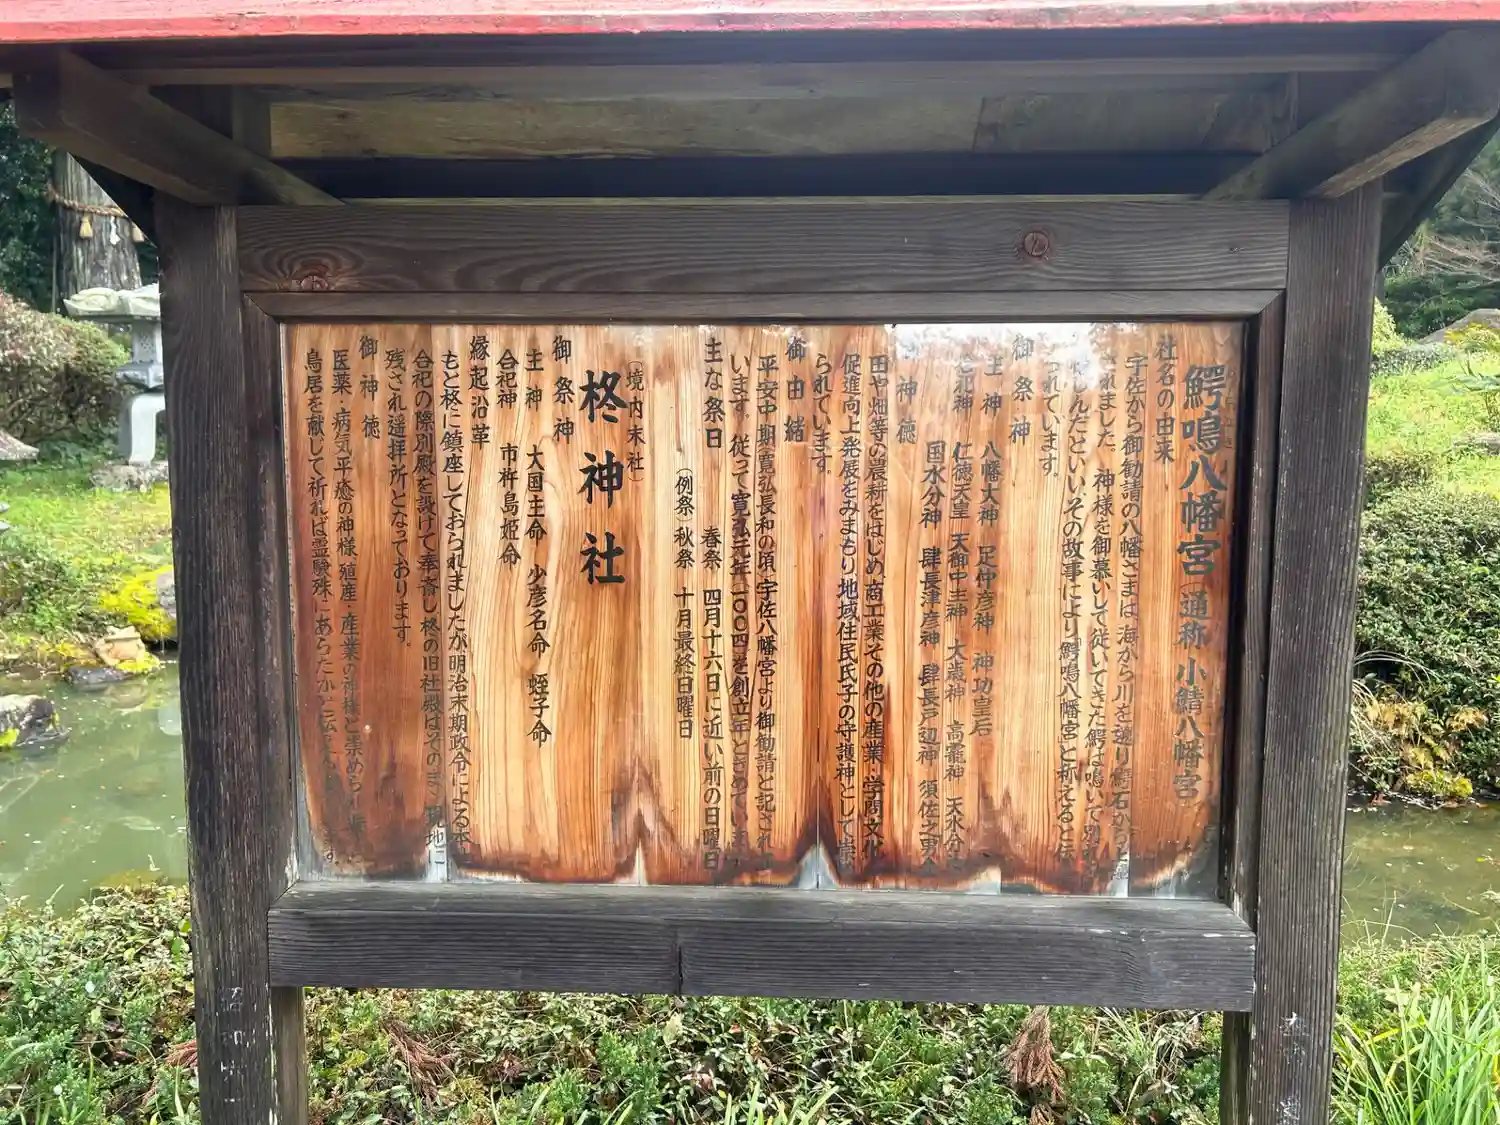 鰐鳴八幡宮 通称 小鯖八幡宮
社名の由来
宇佐から御勧請の八幡さまは、海から川を遡り鰐石から
されました。神様を御慕いして従いてきた鰐は鳴いて別
んだといい、その故事により「鰐鳴八幡宮」と称えると伝
られています。
御祭神
主神 八幡大神 足仲彦神 神功皇后
合祀神 仁徳天皇 天御中主神 大歳神 高龗神 天水分
国水分神 肆長津彦神 肆長戸辺神 須佐之男命
御神徳
田や畑等の農耕をはじめ、商工業その他の産業、学問文化
促進向上発展をみまもり、地域住民氏子の守護神として崇
られています。
御由緒
平安中期、寛弘長和の頃、宇佐八幡宮より御勧請と記され
います。従って寛弘元年一〇〇四を創立年と定めていま
主な祭日 春祭 四月十六日に近い前の日曜日
(例祭)秋祭 十月最終日曜日
(境内末社)
柊神社
御祭神
主神 大国主命 少彦名命 蛭子命
合祀神 市杵島姫命
縁起沿革
もと柊に鎮座しておられましたが明治末期政令による本
合祀の際別殿を設けて奉斎し柊の旧社殿はそのまゝ現地に
残され遥拝所となっております。
御神徳
医薬・病気平癒の神様、殖産・産業の神様と崇められ
鳥居を献じて祈れば霊験殊にあらたかと伝え